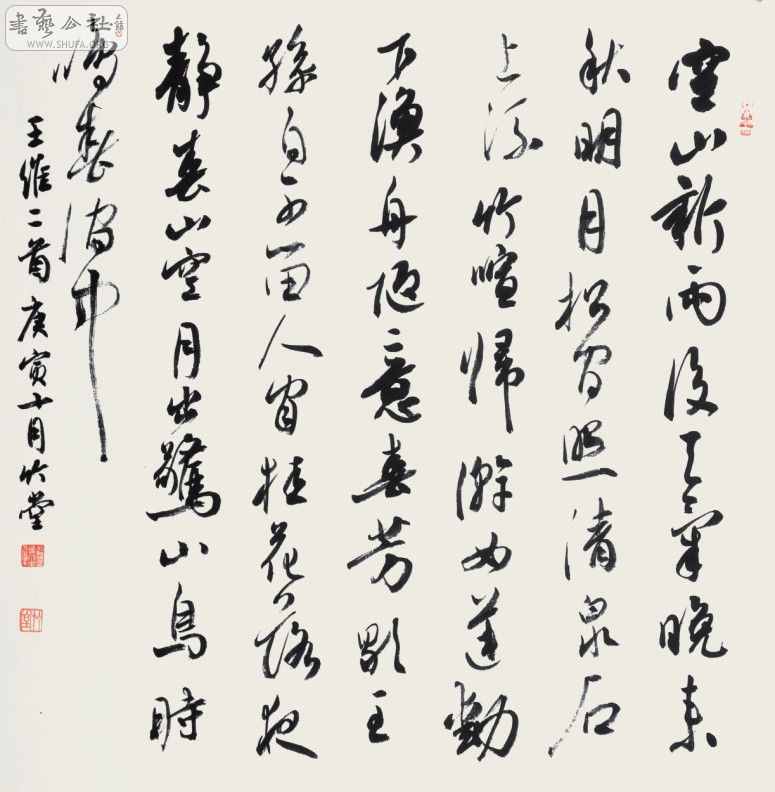 空山新雨後天氣晚来
秋明月松間照清泉石
上流竹喧歸澣女蓮動
下漁舟随意春芳歇王
孫自可留人閒桂花落夜
靜春山空月出驚山鳥時
鳴春澗中
王維二首庚寅十月竹堂
書藝公社
WWW.SHUFA.ORG